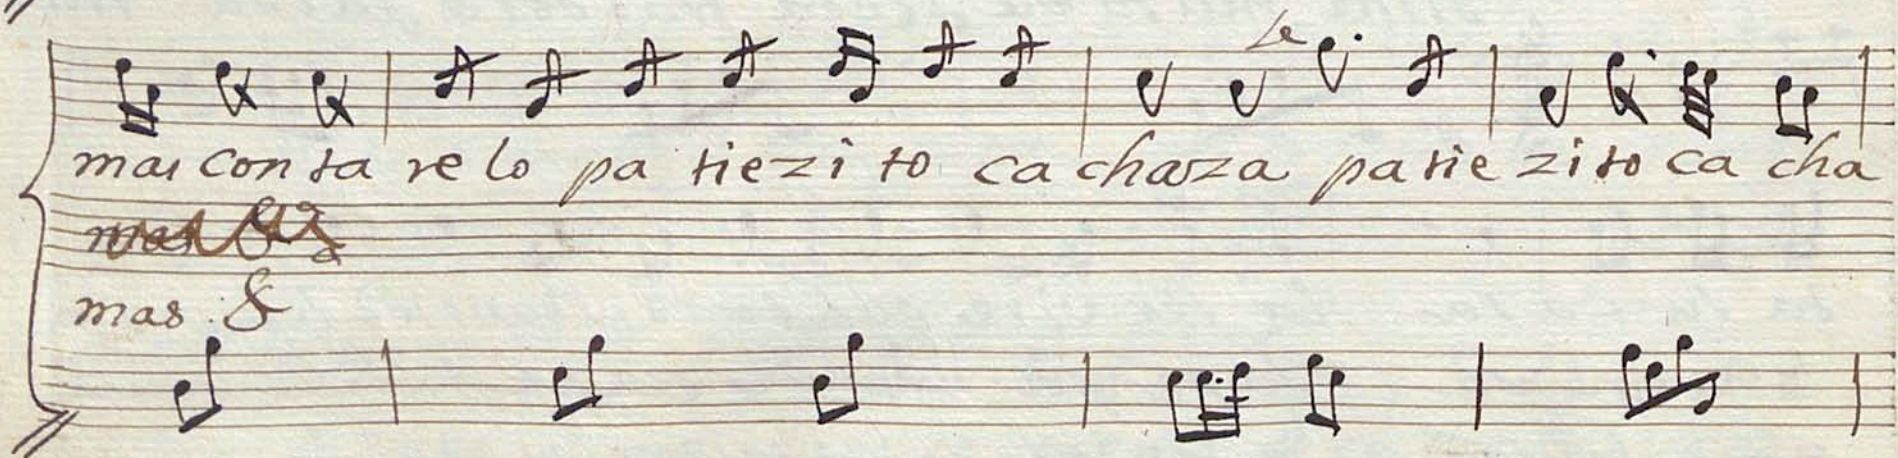 Le
mas con ta re lo pa tie zi to ca chaza pa tie zi to ca cha
mas &
mas : &